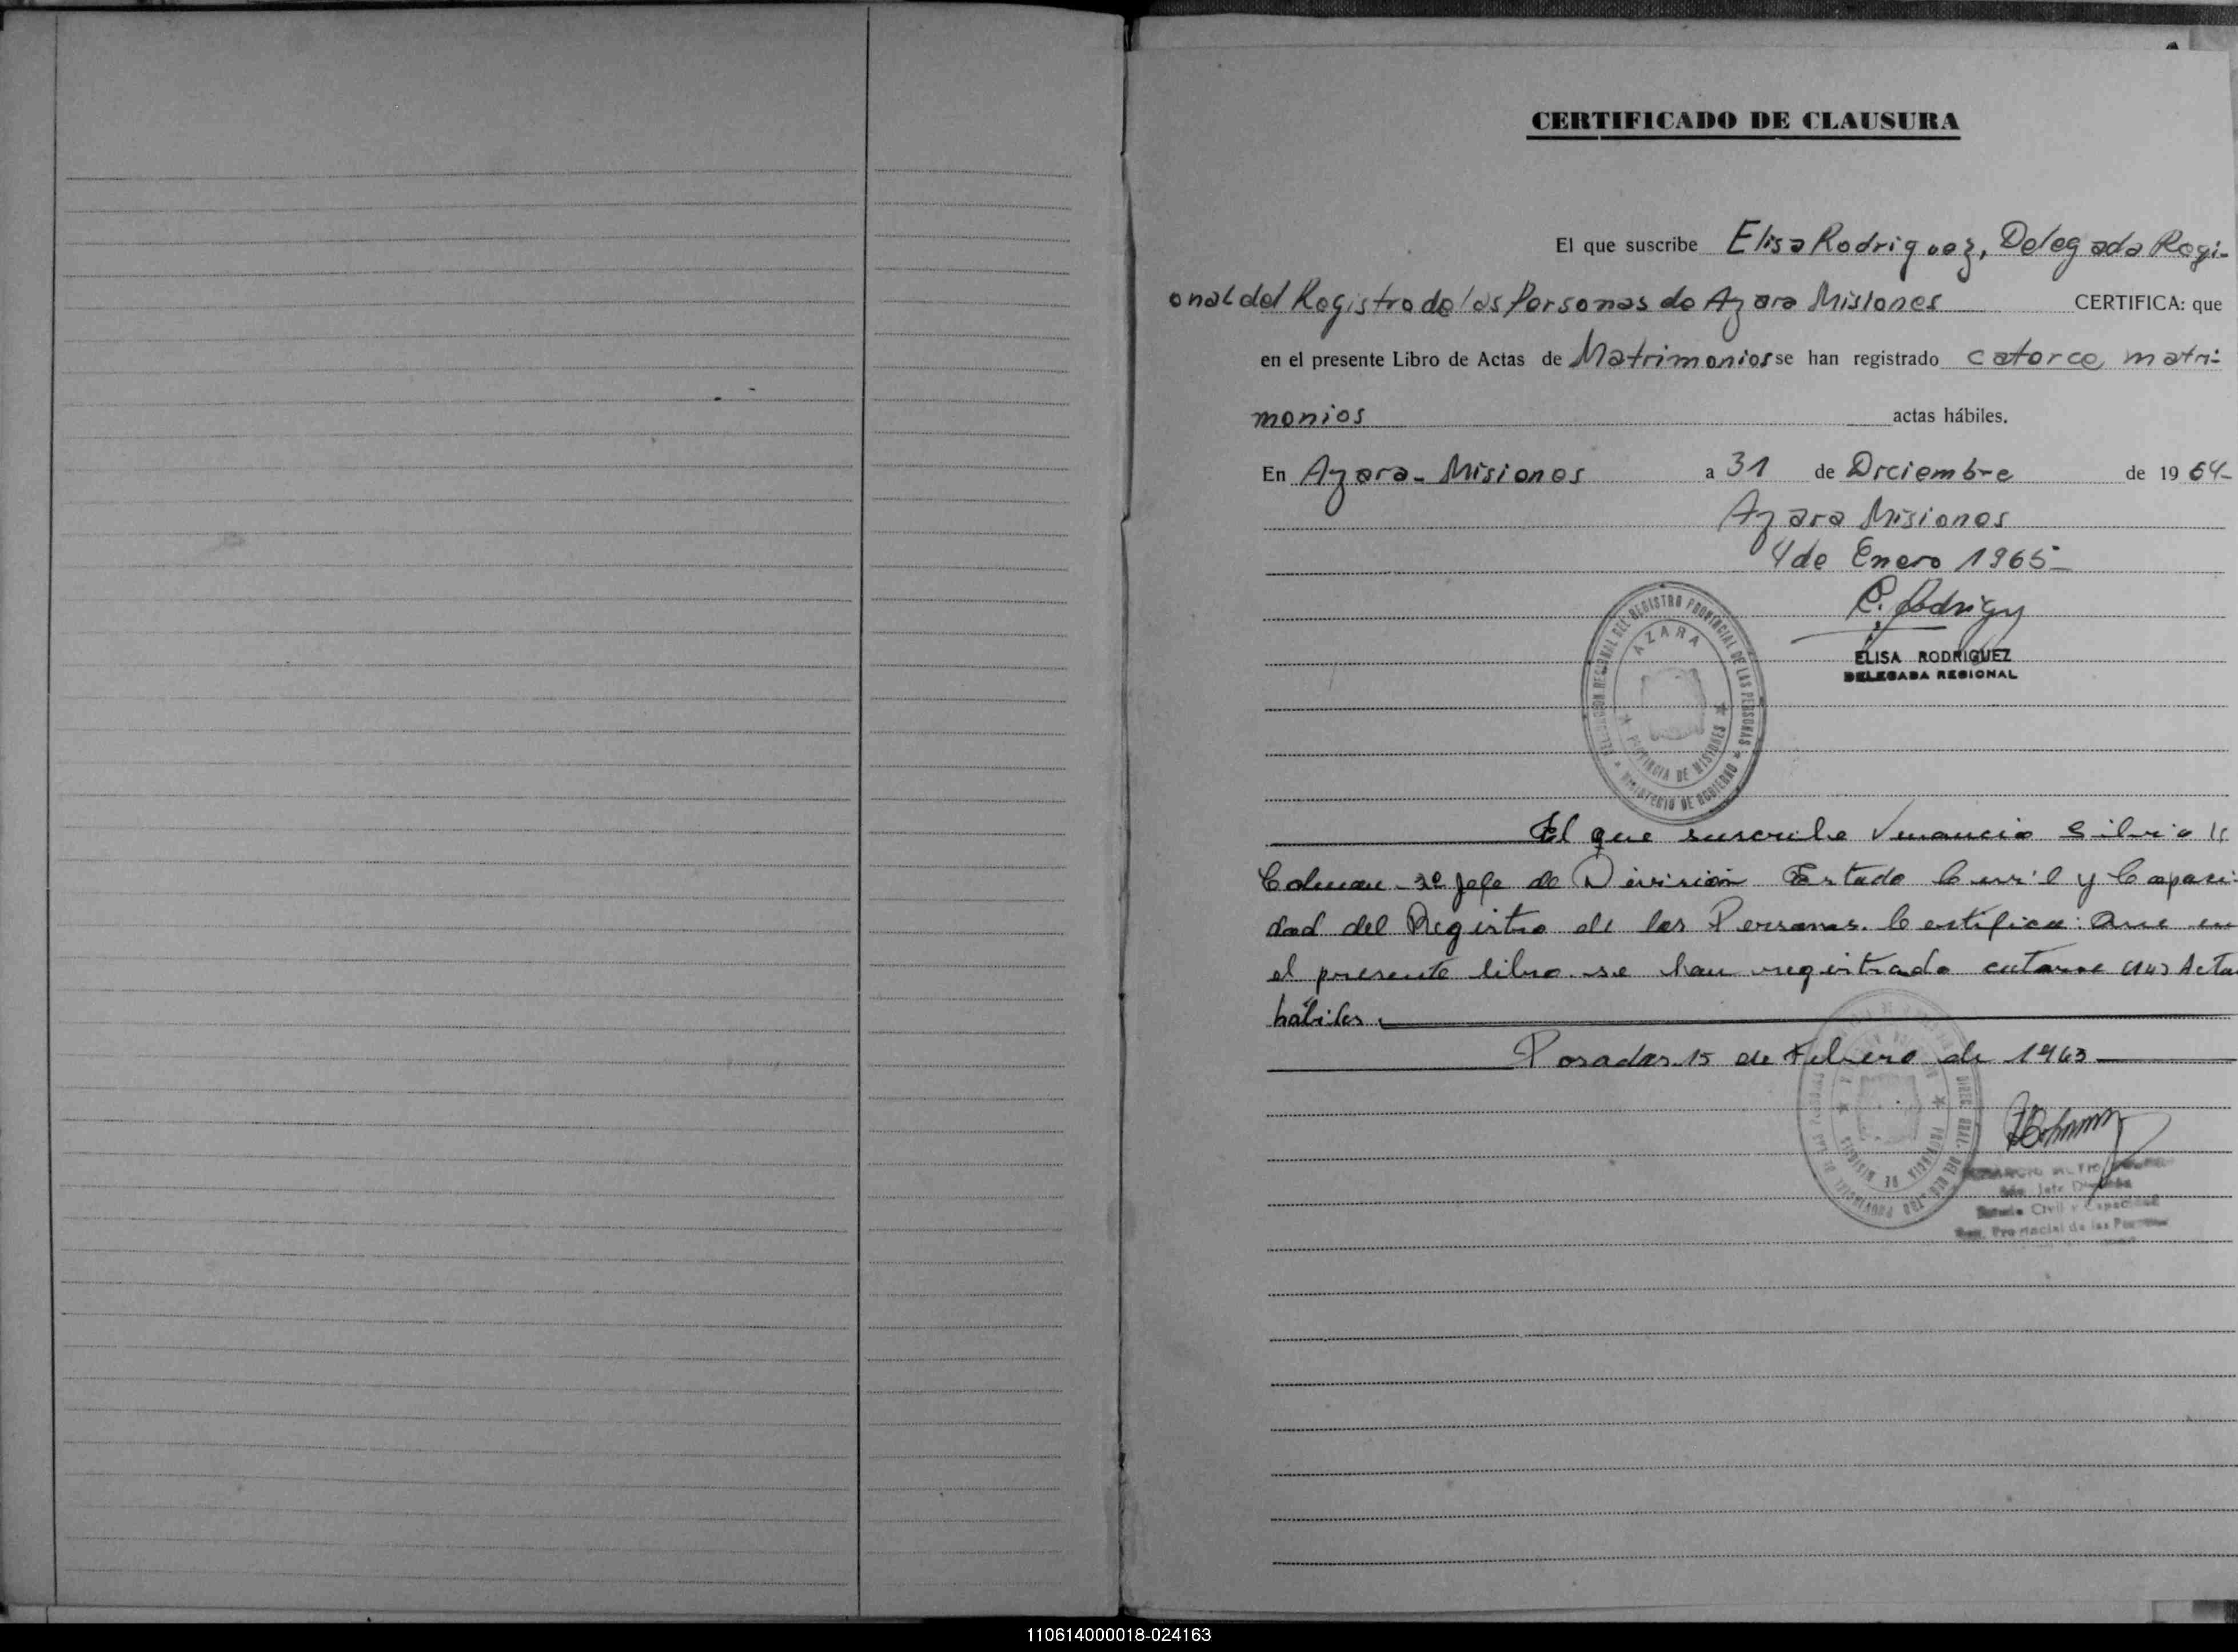 CERTIFICADO DE CLAUSURA
El que suscribe Elisa Rodriguez, Delegada Regi-
onal del Registro de las Personas de Azara Misiones CERTIFICA: que
en el presente Libro de Actas de Matrimonios se han registrado catorce matri-
monios actas hábiles.
En Azara - Misiones a 31 de Diciembre de 1964-
Azara Misiones
4 de Enero 1965-
E. Rodriguez
ELISA RODRIGUEZ
DELEGADA REGIONAL
DELEGACION REGIONAL DEL REGISTRO PROVINCIAL DE LAS PERSONAS
MINISTERIO DE GOBIERNO
AZARA
PROVINCIA DE MISIONES
El que suscribe Venancio Silvio
Colman 2º Jefe de Division Estado Civil y Capaci-
dad del Registro de las Personas. Certifica: Que en
el presente libro se han registrado catorce (14) Acta
hábiles.
Posadas 15 de Febrero de 1965
PROVINCIA DE MISIONES
2do. Jefe División
Estado Civil y Capacidad
Reg. Provincial de las Personas
110614000018-024163